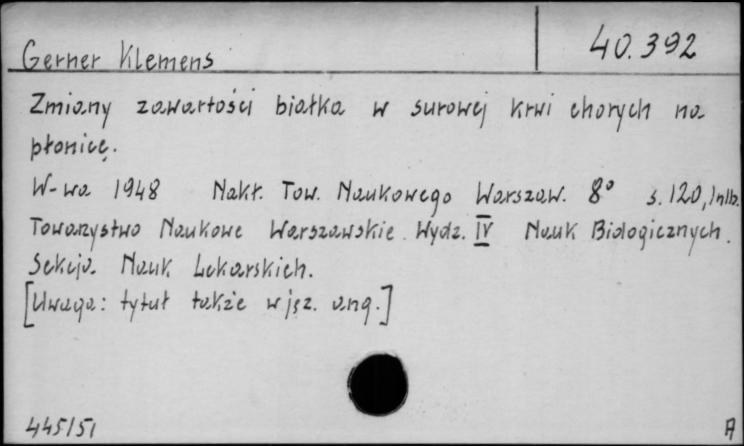 Gerner Klemens
40.392
Zmiany zawartości białka w surowej krwi chorych na
płonicę.
W-wa 1948 Nakł. Tow. Naukowego Warszaw. 8° s. 120, 1 nlb.
Towarzystwo Naukowe Warszawskie. Wydz. IV Nauk Biologicznych.
Sekcja Nauk Lekarskich.
[Uwaga: tytuł także w jęz. ang.]
445/51
A